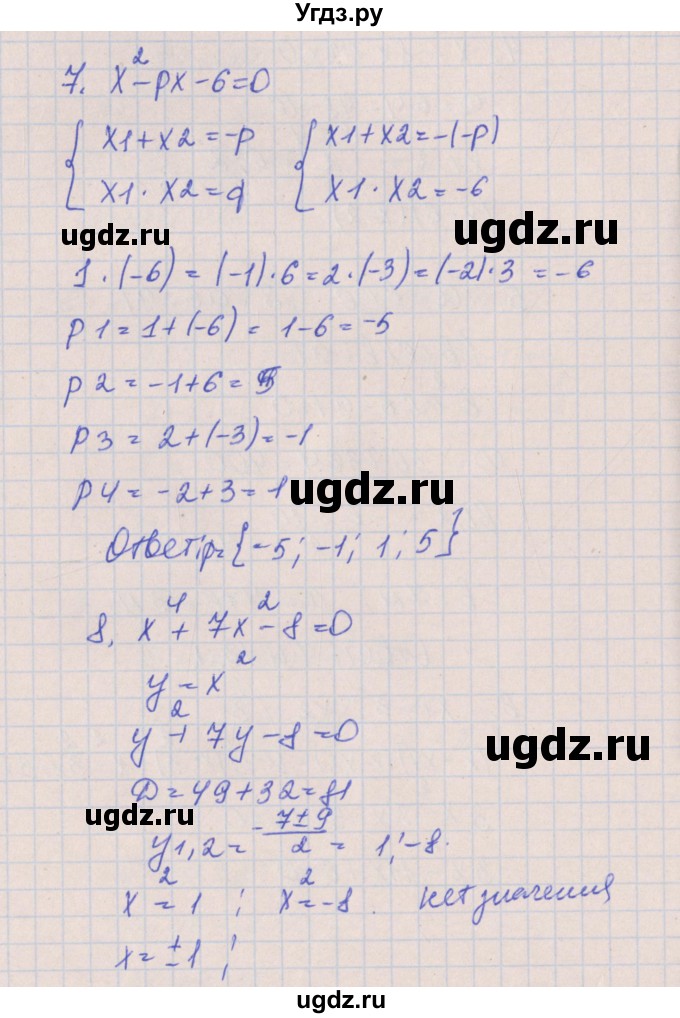 Угдз.ру
7. x² - px - 6 = 0
{ x1 + x2 = -p { x1 + x2 = -(-p)
{ x1 · x2 = q { x1 · x2 = -6
ugdz.ru ugdz.ru
1 · (-6) = (-1) · 6 = 2 · (-3) = (-2) · 3 = -6
p1 = 1 + (-6) = 1 - 6 = -5
p2 = -1 + 6 = 5
p3 = 2 + (-3) = -1
p4 = -2 + 3 = 1
ugdz.ru
Ответ: p = {-5; -1; 1; 5}
8. x⁴ + 7x² - 8 = 0
y = x²
y² + 7y - 8 = 0
ugdz.ru
Д = 49 + 32 = 81
ugdz.ru
y1,2 = -7±9/2 = 1; -8.
x² = 1 ; x² = -8. нет значения
x = ±1 ;
ugdz.ru